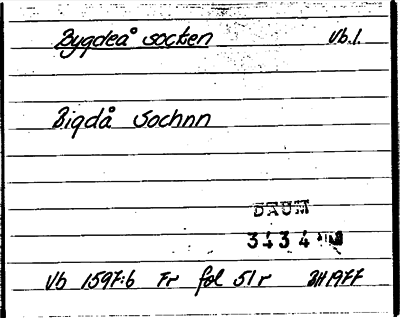 Bygdeå socken Vb.l.
Bigdå Sochnn
DAUM
3434
Vb 1597:6 Fr fol 51r BH1977